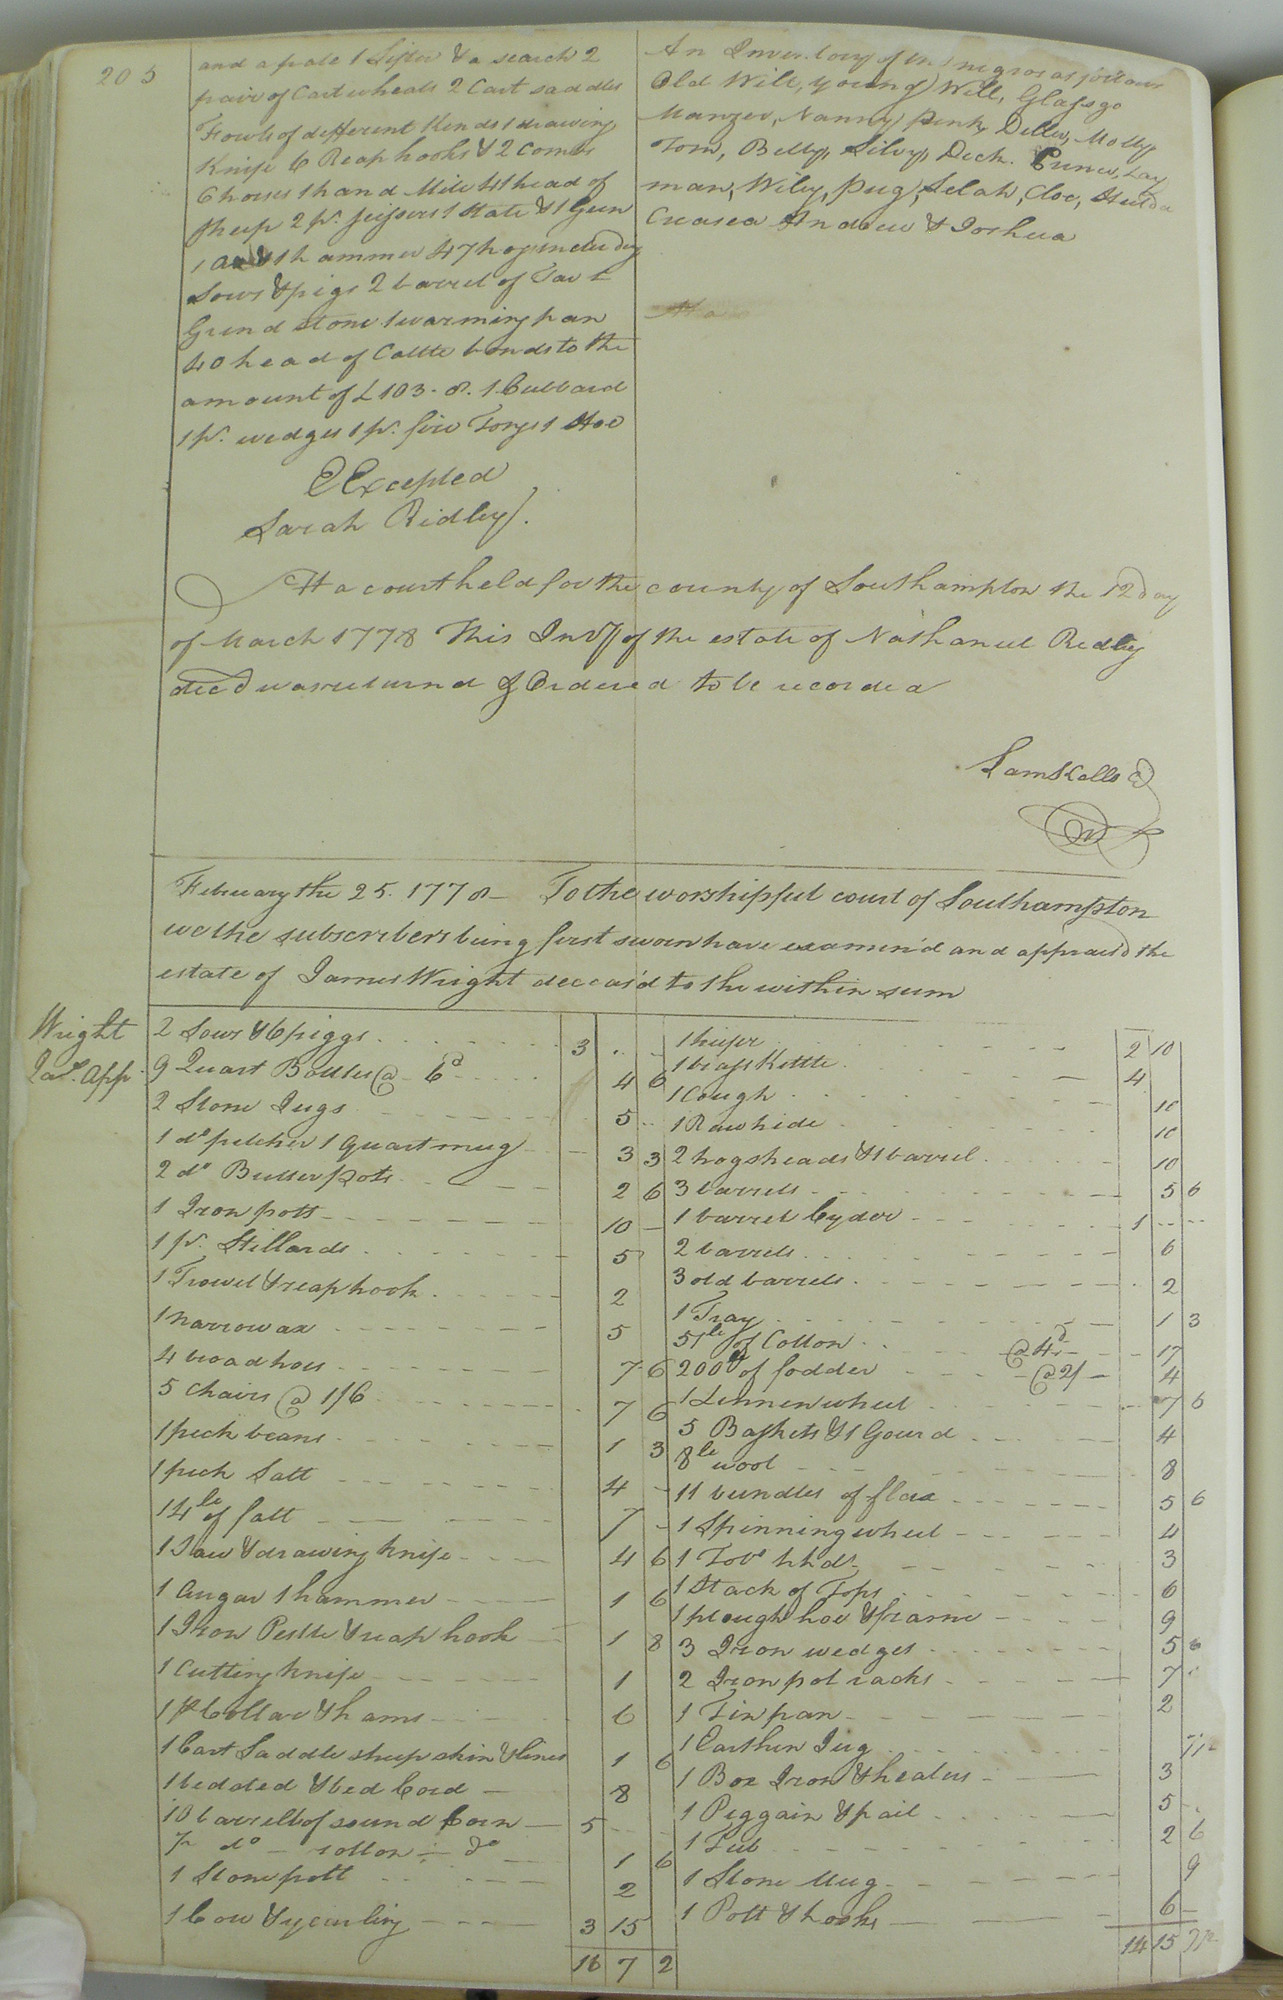 205
and a frale 1 Sifter & a search 2
pair of Cart wheals 2 Cart saddles
Fowls of different kinds 1 drawing
Knife 6 Reap hooks & 2 Combs
6 horses 1 hand Mill 41 head of
sheep 2 pr. scissors 1 Slate & 1 Gun
1 ax & 1 hammer 47 hogs including
Sows & pigs 2 barrel of Tar 1
Grind stone 1 warming pan
40 head of Cattle bonds to the
amount of £103. 8. 1 Cubbard
1 pr. wedges 1 pr. fire Tongs 1 Hoe
E Excepted
Sarah Ridley.
An Inventory of the negros as follows
Old Will, young Will, Glasgo
Manzer, Nanny, Penk, Della, Molly
Tom, Betty, Silvy, Dick. Lay
man, Wiley, Pug, Selah, Cloe, Hulda
Andrew & Joshua
At a court held for the county of Southampton the 12 day
of March 1778 This Invy of the estate of Nathaniel Ridley
decd was returnd & Ordered to be recorded
Sam Kello
February the 25. 1778 – To the worshipful court of Southampton
we the subscribers being first sworn have examin'd and apprais'd the
estate of James Wright deceas'd to the within sum
Wright
Jas. App.
2 Sows & 6 piggs 3 .. -
9 Quart Bottles @ 6d 4 6
2 Stone Jugs 5 ..
1 do pitcher 1 Quart mug 3 3
2 do Butter pots 2 6
1 Iron pott 10 -
1 pr. Stillards 5
1 Trowel & reaphook 2
1 narrow ax 5
4 broad hoes 7 6
5 Chairs @ 1/6 7 6
1 peck beans 1 3
1 peck Salt 4 -
14 lb of salt 7 -
1 Saw & drawing knife 4 6
1 augar 1 hammer 1 6
1 Iron Pestle & reap hook 1 8
1 Cutting knife 1
1 Collar & hams 6
1 Cart Saddle sheep skin & lines 1 6
1 bedsted & bed Cord 8
10 barrells of sound Corn 5
7 do - rotton - do 1 6
1 Stone pott 2
1 Cow & yearling 3 15
16 7 2
1 heifer 2 10
1 brass Kettle 4
1 Cough 10
1 Rawhide 10
2 hogsheads & 1 barrel 10
3 barrels 5 6
1 barrel Cyder 1 .. ..
2 barrels 6
3 old barrels 2
1 Tray 1 3
51 lb of Cotton @ 4d 17
200 of fodder @ 2/ 4
1 Linnen wheel 7 6
5 Baskets & 1 Gourd 4
8 lb wool 8
11 bundles of flax 5 6
1 Spinning wheel 4
1 Tobo hhds 3
1 Stack of Tops 6
1 plough hoe & frame 9
3 Iron wedges 5 6
2 Iron pot racks 7
1 Tin pan 2
1 Earthen Jug 7½
1 Box Iron & heaters 3
1 Peggain & pail 5 -
1 Tub 2 6
1 Stone Mug 9
1 Pott & hooks 6 -
14 15 7½